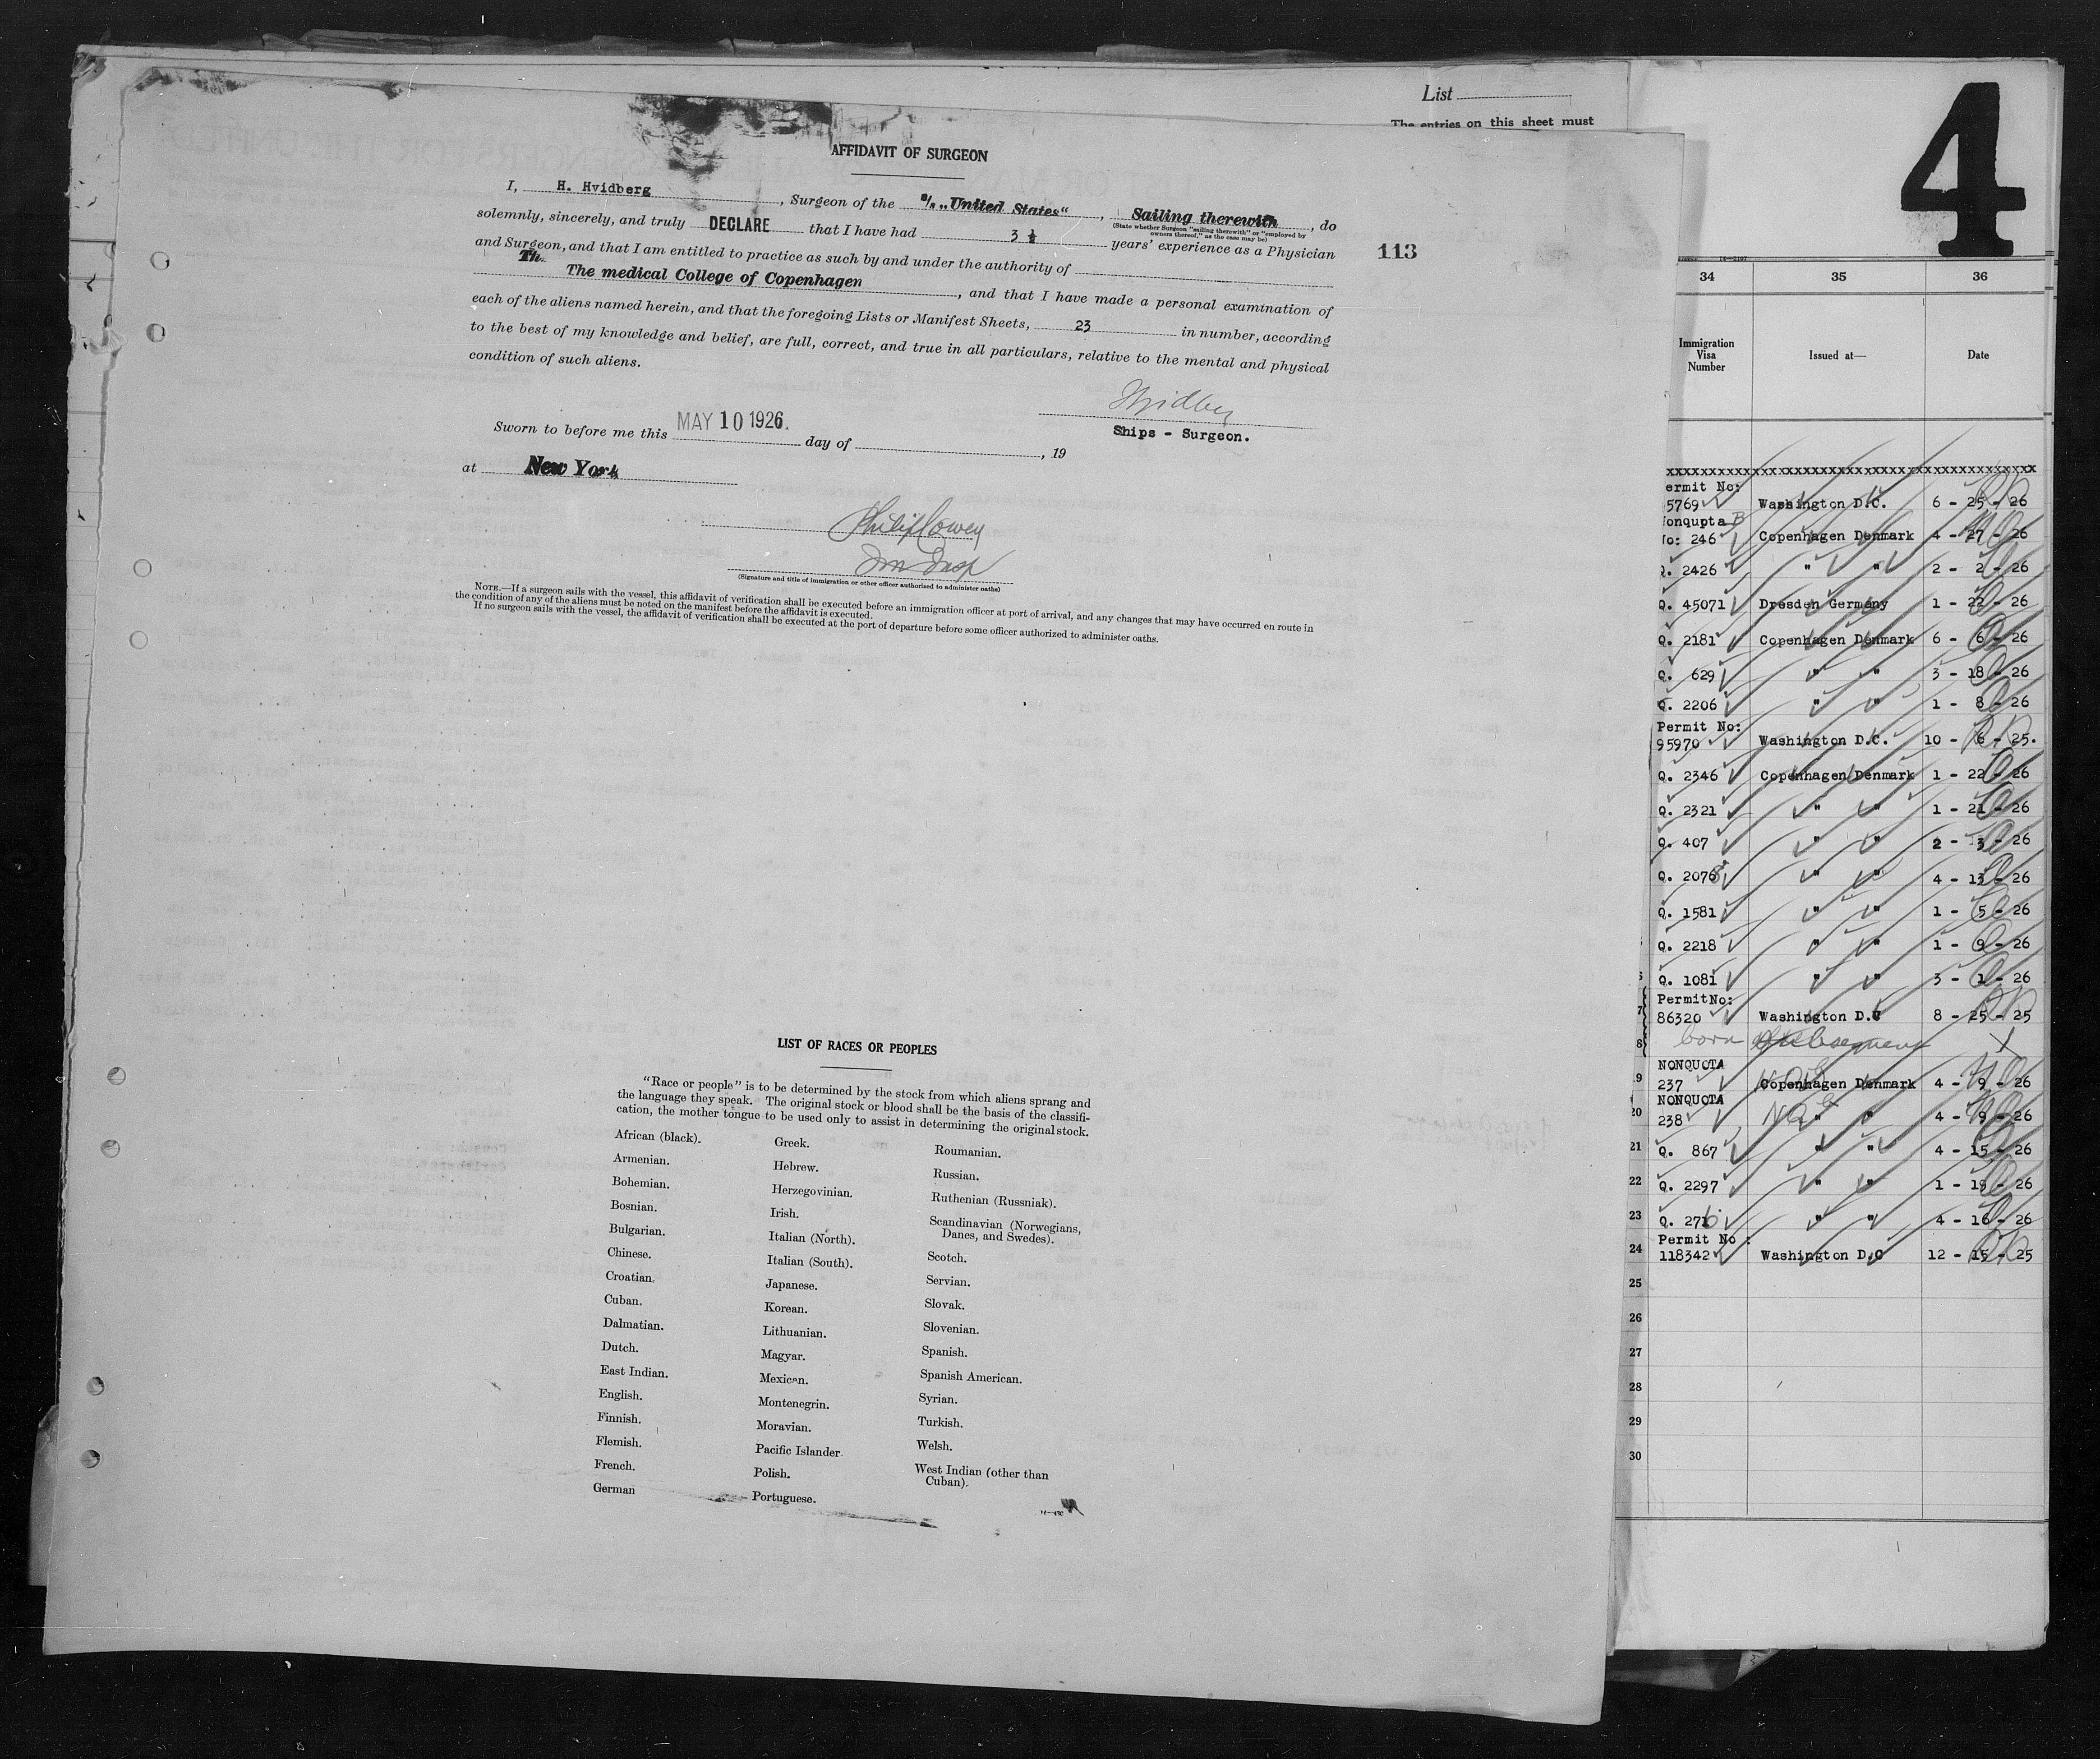 List
The entries on this sheet must
4
AFFIDAVIT OF SURGEON
I, H. Hvidberg, Surgeon of the S/s „United States“, Sailing therewith, do
(State whether Surgeon "sailing therewith" or "employed by
owners thereof," as the case may be)
solemnly, sincerely, and truly DECLARE that I have had 3 ½ years' experience as a Physician
113
and Surgeon, and that I am entitled to practice as such by and under the authority of
Th. The medical College of Copenhagen, and that I have made a personal examination of
each of the aliens named herein, and that the foregoing Lists or Manifest Sheets, 23 in number, according
to the best of my knowledge and belief, are full, correct, and true in all particulars, relative to the mental and physical
condition of such aliens.
Hvidberg
Ships - Surgeon.
Sworn to before me this MAY 10 1926. day of , 19
at New York
Philip Cowen
Im Insp
(Signature and title of immigration or other officer authorized to administer oaths)
NOTE.—If a surgeon sails with the vessel, this affidavit of verification shall be executed before an immigration officer at port of arrival, and any changes that may have occurred en route in
the condition of any of the aliens must be noted on the manifest before the affidavit is executed.
If no surgeon sails with the vessel, the affidavit of verification shall be executed at the port of departure before some officer authorized to administer oaths.
LIST OF RACES OR PEOPLES
"Race or people" is to be determined by the stock from which aliens sprang and
the language they speak. The original stock or blood shall be the basis of the classifi-
cation, the mother tongue to be used only to assist in determining the original stock.
African (black).
Armenian.
Bohemian.
Bosnian.
Bulgarian.
Chinese.
Croatian.
Cuban.
Dalmatian.
Dutch.
East Indian.
English.
Finnish.
Flemish.
French.
German
Greek.
Hebrew.
Herzegovinian.
Irish.
Italian (North).
Italian (South).
Japanese.
Korean.
Lithuanian.
Magyar.
Mexican.
Montenegrin.
Moravian.
Pacific Islander.
Polish.
Portuguese.
Roumanian.
Russian.
Ruthenian (Russniak).
Scandinavian (Norwegians,
Danes, and Swedes).
Scotch.
Servian.
Slovak.
Slovenian.
Spanish.
Spanish American.
Syrian.
Turkish.
Welsh.
West Indian (other than
Cuban).
34 35 36
Immigration
Visa
Number
Issued at—
Date
xxxxxxxxxxxxxxxxxxxxxxxxxxxxxxxxxxxxxxxx
ermit No:
5769 Washington D.C. 6 - 25 - 26
onqupta B
o: 246 Copenhagen Denmark 4 - 27 - 26
Q. 2426 " " 2 - 2 - 26
Q. 45071 Dresden Germany 1 - 22 - 26
Q. 2181 Copenhagen Denmark 6 - 6 - 26
Q. 629 " " 3 - 18 - 26
Q. 2206 " " 1 - 8 - 26
Permit No:
95970 Washington D.C. 10 - 6 - 25.
Q. 2346 Copenhagen Denmark 1 - 22 - 26
Q. 2321 " " 1 - 21 - 26
Q. 407 " " 2 - 13 - 26
Q. 2078 " " 4 - 13 - 26
Q. 1581 " " 1 - 5 - 26
Q. 2218 " " 1 - 9 - 26
Q. 1081 " " 3 - 1 - 26
Permit No:
86320 Washington D.C 8 - 25 - 25
born subsequent X
NONQUOTA
237 Copenhagen Denmark 4 - 9 - 26
NONQUOTA
20 238 " " 4 - 9 - 26
21 Q. 867 " " 4 - 15 - 26
22 Q. 2297 " " 1 - 19 - 26
23 Q. 276 " " 4 - 16 - 26
Permit No :
24 118342 Washington D.C 12 - 15 - 25
25
26
27
28
29
30